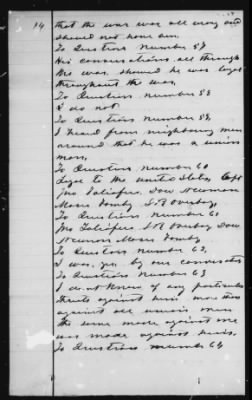 14 that the war was all wrong and
should not have been.
To Question Number 57
His conversations all through
the war, showed he was loyal
throughout the war.
To Question number 58
I do not
To Question number 59
I heard from neighboring men
around that he was a union
man,
To Question number 60
Loyal to the United States, Capt
Jno Taliafero, Dow Newman
Moses Formby S. R. Overby,
To Question number 61
Jno Taliafero, S R Overby Dow
Newman Moses Formby
To Question number 62,
I was, yes by our conversation
To Question number 63
I do not know of any particular
threats against him more than
against all union men
the same made against one
was made against him.
To Question number 64